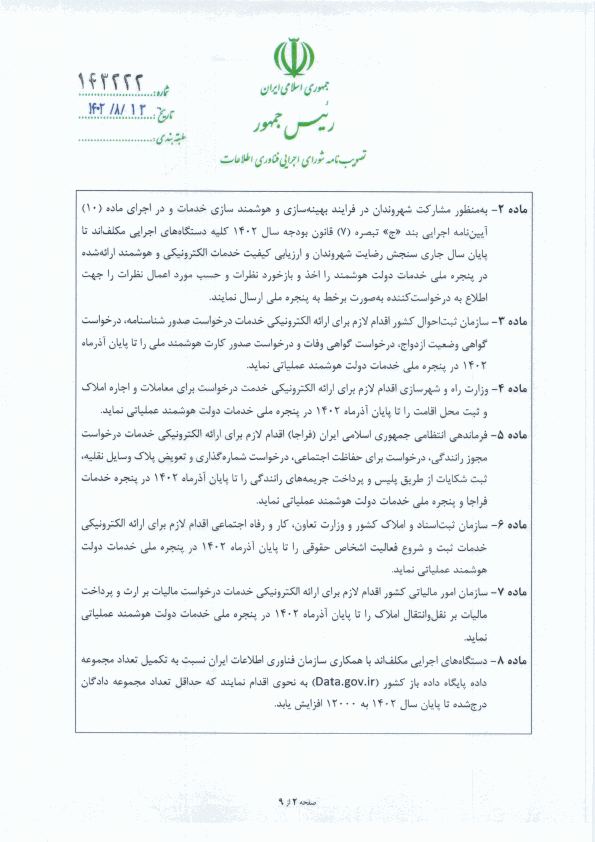 جمهوری اسلامی ایران
رئیس جمهور
تصویب‌نامه شورای اجرایی فناوری اطلاعات
شماره: ۱۴۳۲۲۲
تاریخ: ۱۴۰۲/۸/۱۳
طبقه‌بندی:
ماده ۲- به‌منظور مشارکت شهروندان در فرایند بهینه‌سازی و هوشمند سازی خدمات و در اجرای ماده (۱۰)
آیین‌نامه اجرایی بند «ج» تبصره (۷) قانون بودجه سال ۱۴۰۲ کلیه دستگاه‌های اجرایی مکلف‌اند تا
پایان سال جاری سنجش رضایت شهروندان و ارزیابی کیفیت خدمات الکترونیکی و هوشمند ارائه‌شده
در پنجره ملی خدمات دولت هوشمند را اخذ و بازخورد نظرات و حسب مورد اعمال نظرات را جهت
اطلاع به درخواست‌کننده به‌صورت برخط به پنجره ملی ارسال نمایند.
ماده ۳- سازمان ثبت‌احوال کشور اقدام لازم برای ارائه الکترونیکی خدمات درخواست صدور شناسنامه، درخواست
گواهی وضعیت ازدواج، درخواست گواهی وفات و درخواست صدور کارت هوشمند ملی را تا پایان آذرماه
۱۴۰۲ در پنجره ملی خدمات دولت هوشمند عملیاتی نماید.
ماده ۴- وزارت راه و شهرسازی اقدام لازم برای ارائه الکترونیکی خدمت درخواست برای معاملات و اجاره املاک
و ثبت محل اقامت را تا پایان آذرماه ۱۴۰۲ در پنجره ملی خدمات دولت هوشمند عملیاتی نماید.
ماده ۵- فرماندهی انتظامی جمهوری اسلامی ایران (فراجا) اقدام لازم برای ارائه الکترونیکی خدمات درخواست
مجوز رانندگی، درخواست برای حفاظت اجتماعی، درخواست شماره‌گذاری و تعویض پلاک وسایل نقلیه،
ثبت شکایات از طریق پلیس و پرداخت جریمه‌های رانندگی را تا پایان آذرماه ۱۴۰۲ در پنجره خدمات
فراجا و پنجره ملی خدمات دولت هوشمند عملیاتی نماید.
ماده ۶- سازمان ثبت‌اسناد و املاک کشور و وزارت تعاون، کار و رفاه اجتماعی اقدام لازم برای ارائه الکترونیکی
خدمات ثبت و شروع فعالیت اشخاص حقوقی را تا پایان آذرماه ۱۴۰۲ در پنجره ملی خدمات دولت
هوشمند عملیاتی نماید.
ماده ۷- سازمان امور مالیاتی کشور اقدام لازم برای ارائه الکترونیکی خدمات درخواست مالیات بر ارث و پرداخت
مالیات بر نقل‌وانتقال املاک را تا پایان آذرماه ۱۴۰۲ در پنجره ملی خدمات دولت هوشمند عملیاتی
نماید.
ماده ۸- دستگاه‌های اجرایی مکلف‌اند با همکاری سازمان فناوری اطلاعات ایران نسبت به تکمیل تعداد مجموعه
داده پایگاه داده باز کشور (Data.gov.ir) به نحوی اقدام نمایند که حداقل تعداد مجموعه دادگان
درج‌شده تا پایان سال ۱۴۰۲ به ۱۲۰۰۰ افزایش یابد.
صفحه ۲ از ۹